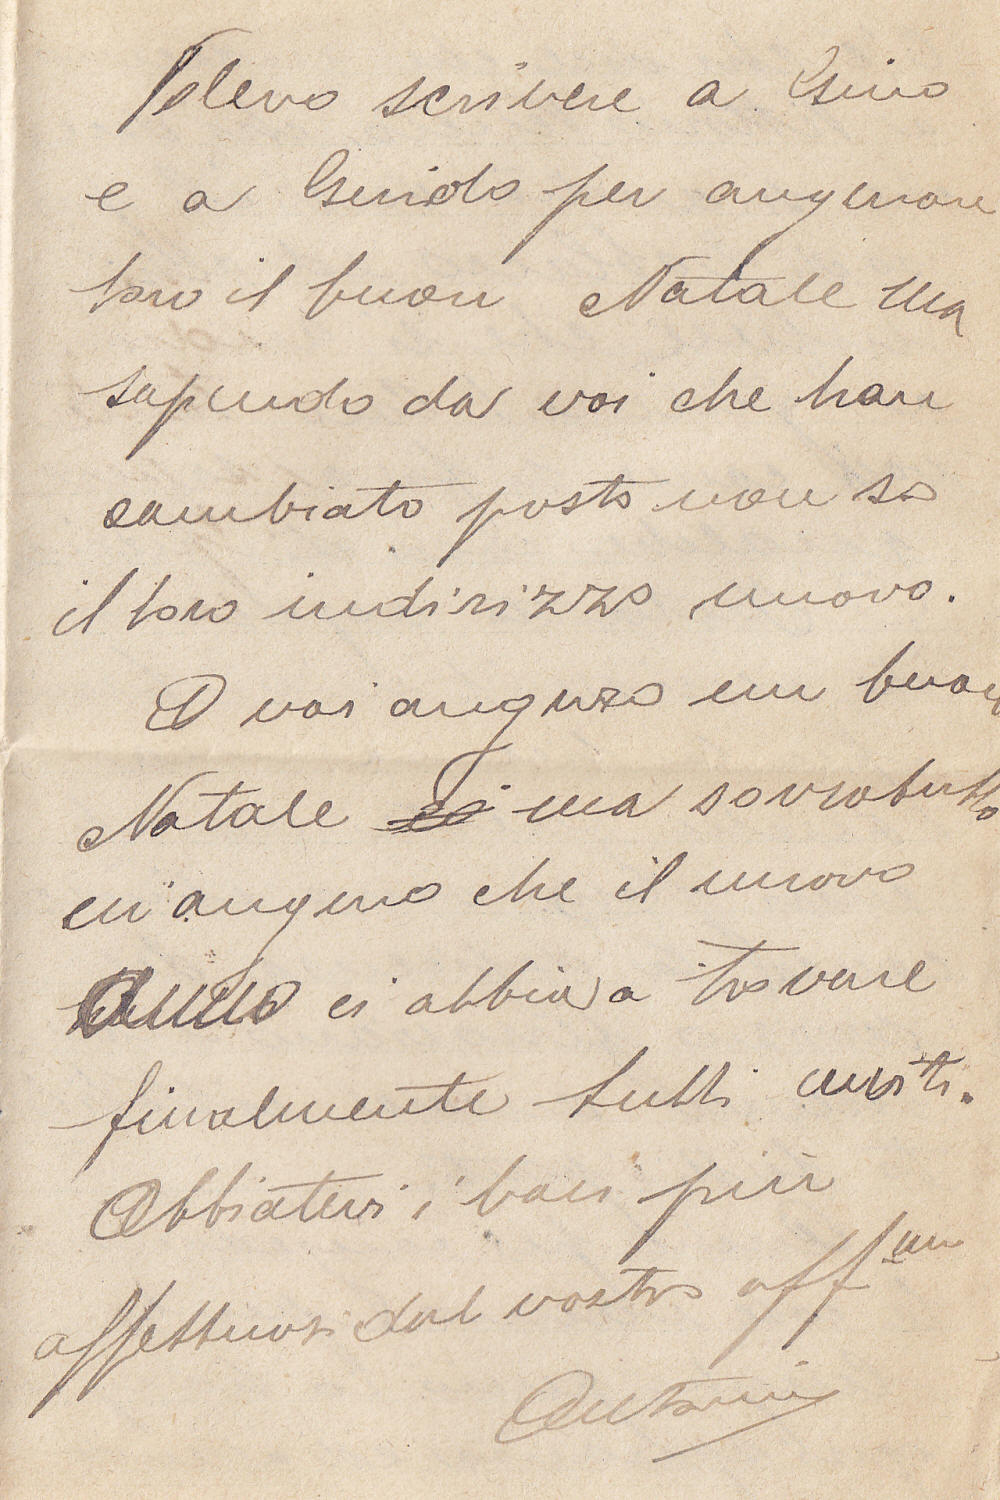 Volevo scrivere a Gino
e a Guido per augurare
loro il buon Natale ma
sapendo da voi che han
cambiato posto non so
il loro indirizzo nuovo.
A voi auguro un buon
Natale ma sovratutto
ci auguro che il nuovo
anno ci abbia a trovare
finalmente tutti uniti.
Abbiatevi i baci più
affettuosi dal vostro aff